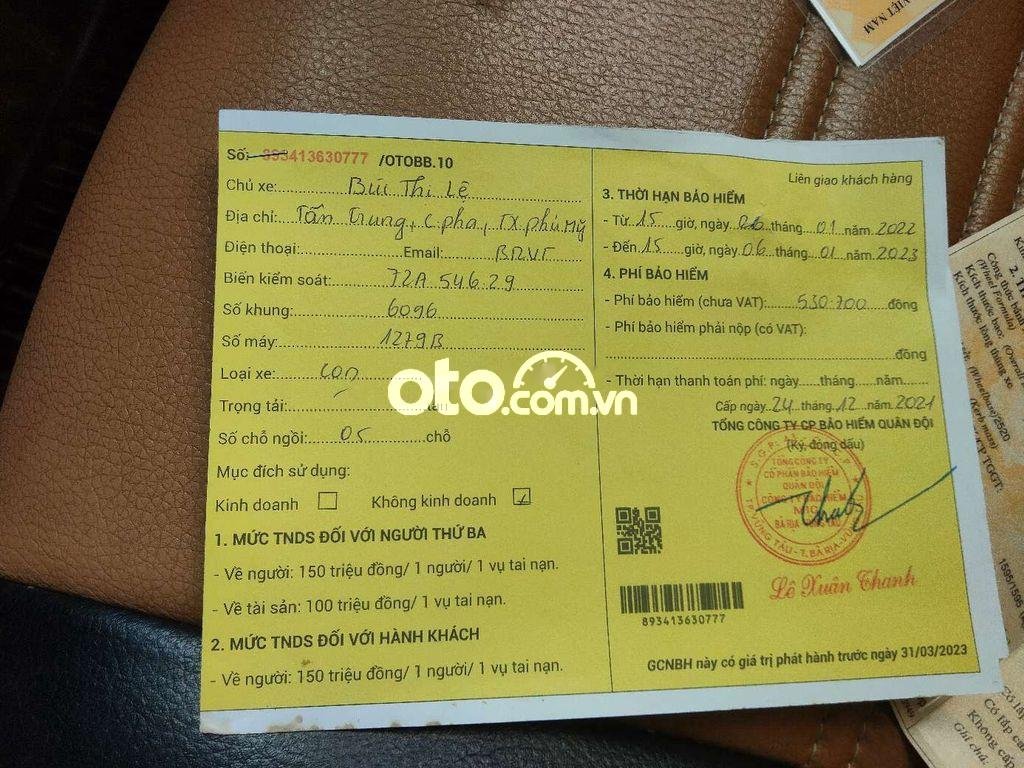 VIỆT NAM
Số: 893413630777 /OTOBB.10
Chủ xe: Bùi Thị Lệ
Địa chỉ: Tân Trung, C.pha, TX phú Mỹ
Điện thoại: Email: BRVT
Biển kiểm soát: 72A 546.29
Số khung: 6096
Số máy: 1279B
Loại xe: con
Trọng tải: tấn
Số chỗ ngồi: 05 chỗ
Mục đích sử dụng:
Kinh doanh Không kinh doanh
1. MỨC TNDS ĐỐI VỚI NGƯỜI THỨ BA
- Về người: 150 triệu đồng/ 1 người/ 1 vụ tai nạn.
- Về tài sản: 100 triệu đồng/ 1 vụ tai nạn.
2. MỨC TNDS ĐỐI VỚI HÀNH KHÁCH
- Về người: 150 triệu đồng/ 1 người/ 1 vụ tai nạn.
Liên giao khách hàng
3. THỜI HẠN BẢO HIỂM
- Từ 15 giờ, ngày 06 tháng 01 năm 2022
- Đến 15 giờ, ngày 06 tháng 01 năm 2023
4. PHÍ BẢO HIỂM
- Phí bảo hiểm (chưa VAT): 530.700 đồng
- Phí bảo hiểm phải nộp (có VAT):
đồng
- Thời hạn thanh toán phí: ngày......tháng......năm......
Cấp ngày 24 tháng 12 năm 2021
TỔNG CÔNG TY CP BẢO HIỂM QUÂN ĐỘI
(Ký, đóng dấu)
TỔNG CÔNG TY
CỔ PHẦN BẢO HIỂM
QUÂN ĐỘI
CÔNG TY BẢO HIỂM
MIC
BÀ RỊA-VŨNG TÀU
TP.VŨNG TÀU - T. BÀ RỊA-VŨNG TÀU
Lê Xuân Thanh
893413630777
GCNBH này có giá trị phát hành trước ngày 31/03/2023
oto.com.vn
Công thức bánh
(Wheel Formula)
Kích thước bao: (Overall
Kích thước lòng thùng xe
(Wheelbase) 2520
(Kerb mass)
1595/1595
Có lắp
Không cấp
Ghi chú: